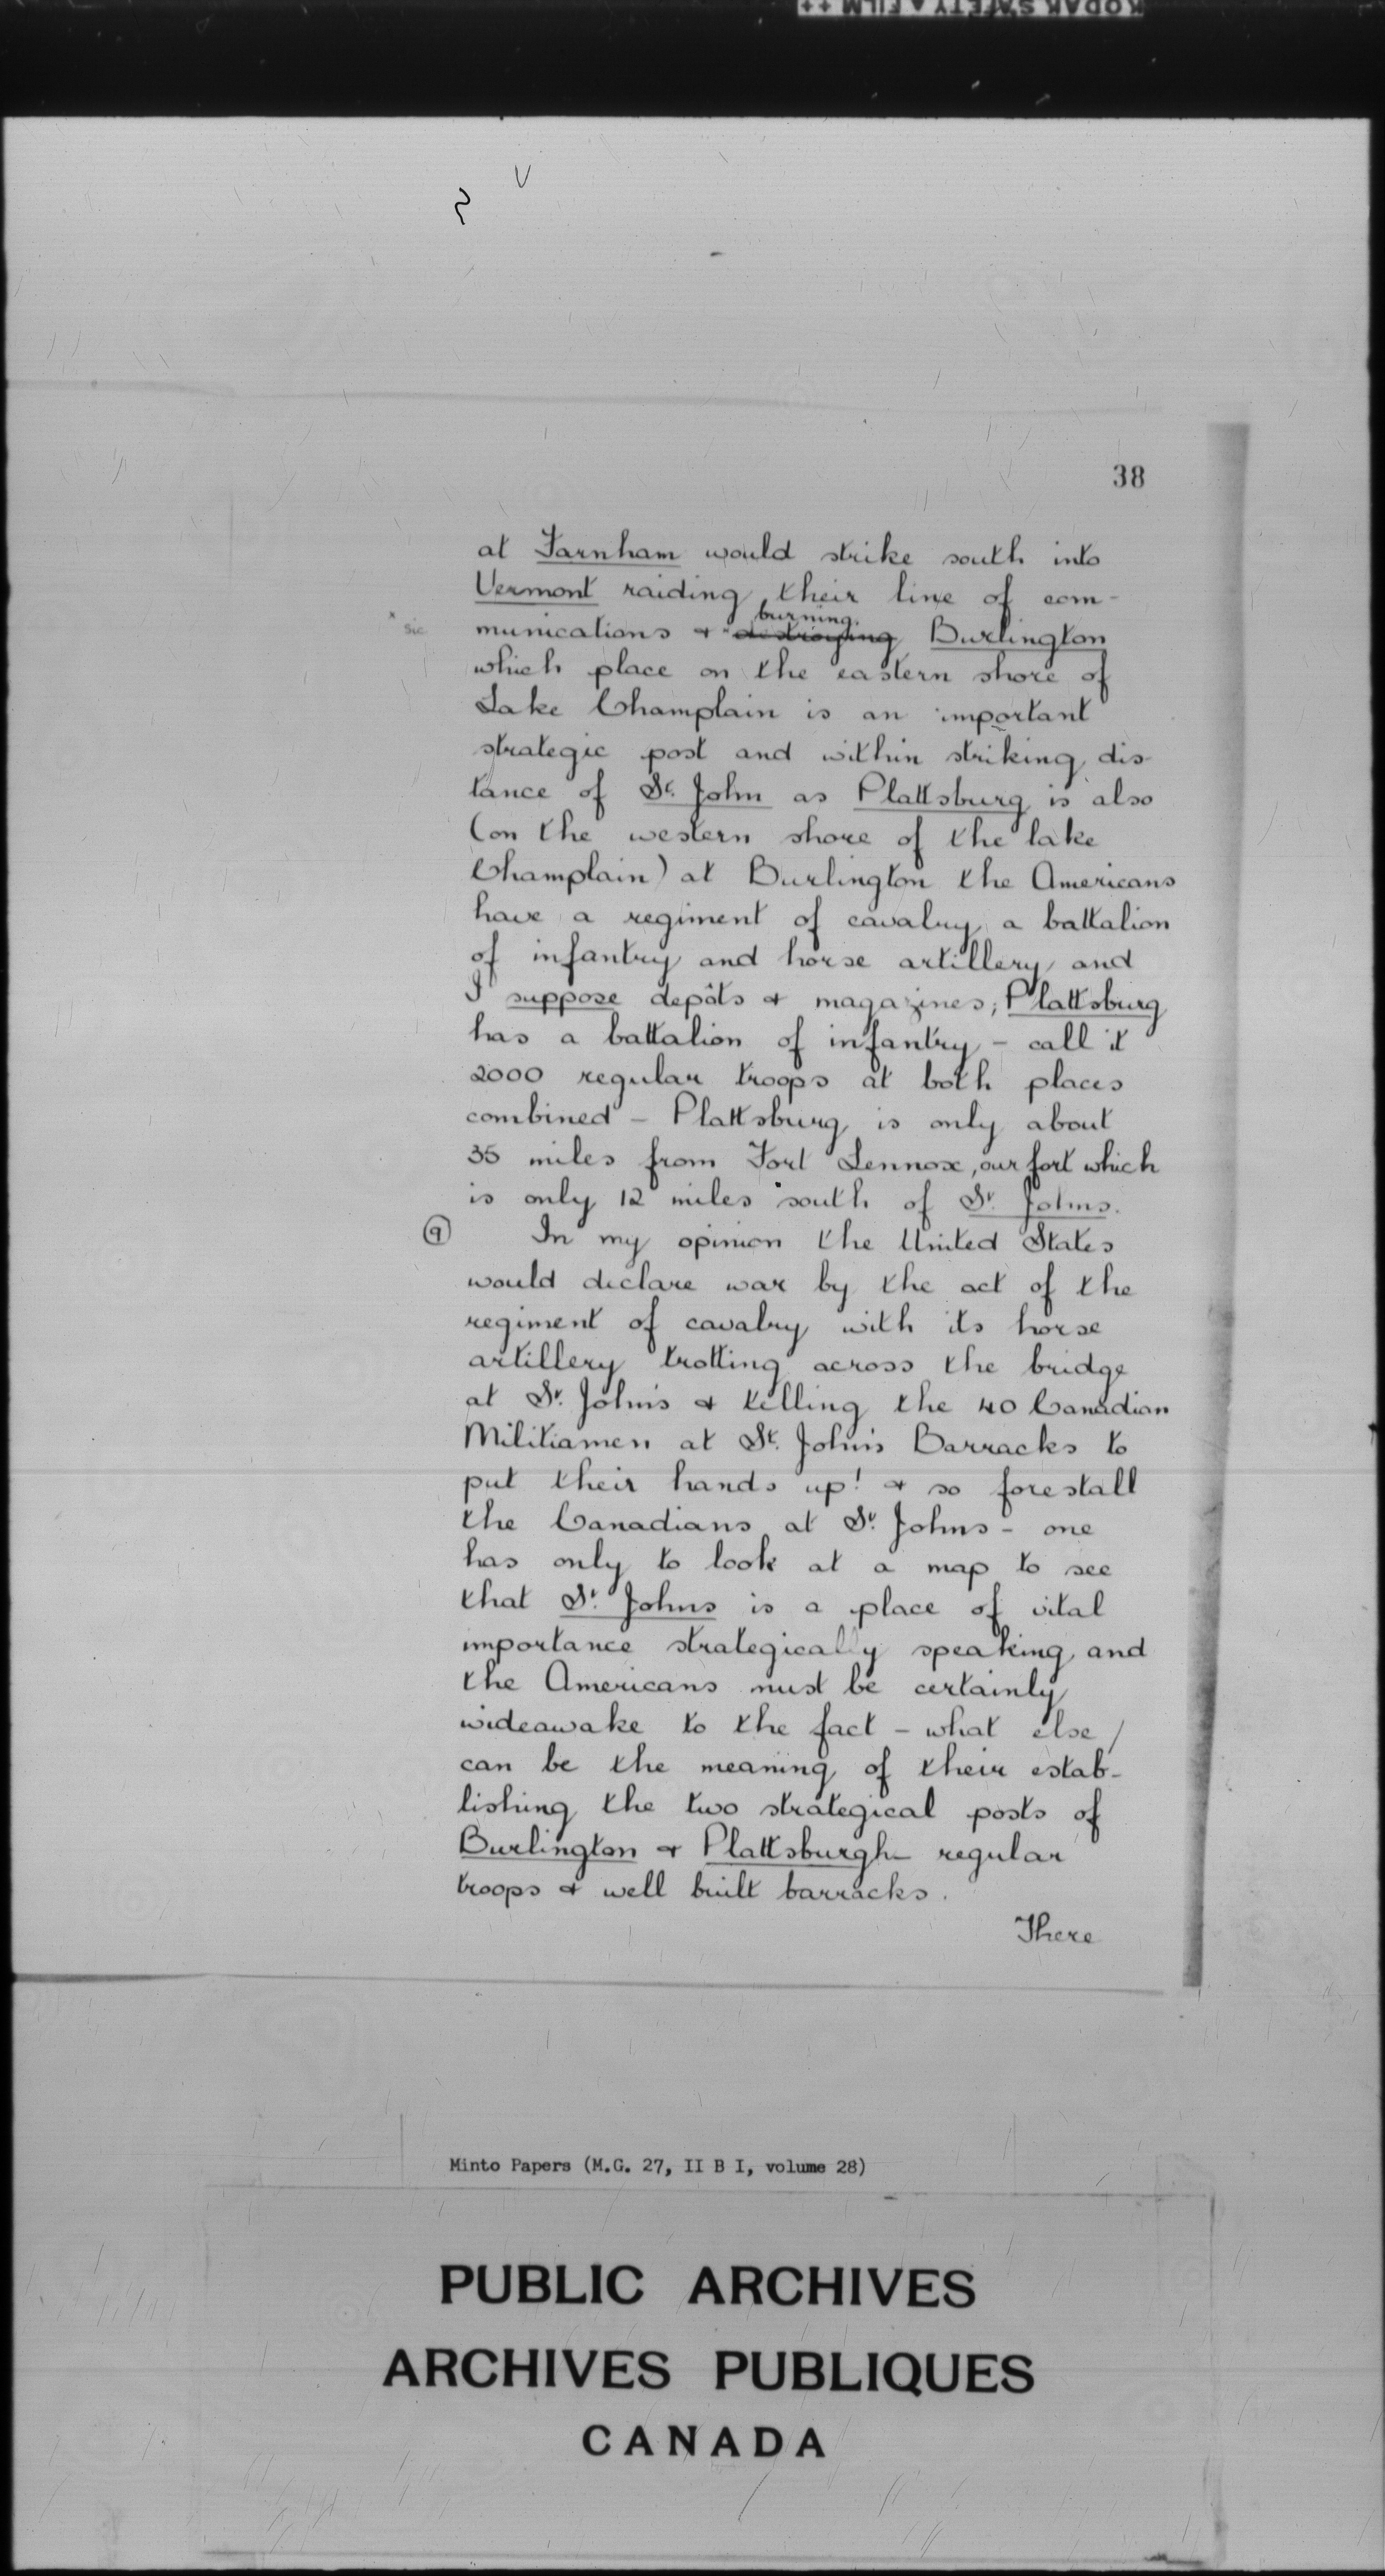 KODAK SAFETY ▲ FILM ++
38
at Farnham would strike south into
Vermont raiding their line of com-
burning
x sic munications & x distroying Burlington
which place on the eastern shore of
Lake Champlain is an important
strategic post and within striking dis-
tance of St. John as Plattsburg is also
(on the western shore of the lake
Champlain) at Burlington the Americans
have a regiment of cavalry a battalion
of infantry and horse artillery and
I suppose depôts & magazines; Plattsburg
has a battalion of infantry - call it
2000 regular troops at both places
combined - Plattsburg is only about
35 miles from Fort Lennox, our fort which
is only 12 miles south of St. Johns.
(9) In my opinion the United States
would declare war by the act of the
regiment of cavalry with its horse
artillery trotting across the bridge
at St. John's & telling the 40 Canadian
Militiamen at St. John's Barracks to
put their hands up! & so forestall
the Canadians at St. Johns - one
has only to look at a map to see
that St. Johns is a place of vital
importance strategically speaking and
the Americans must be certainly
wideawake to the fact - what else /
can be the meaning of their estab-
lishing the two strategical posts of
Burlington & Plattsburgh - regular
troops & well built barracks.
There
Minto Papers (M.G. 27, II B I, volume 28)
PUBLIC ARCHIVES
ARCHIVES PUBLIQUES
CANADA